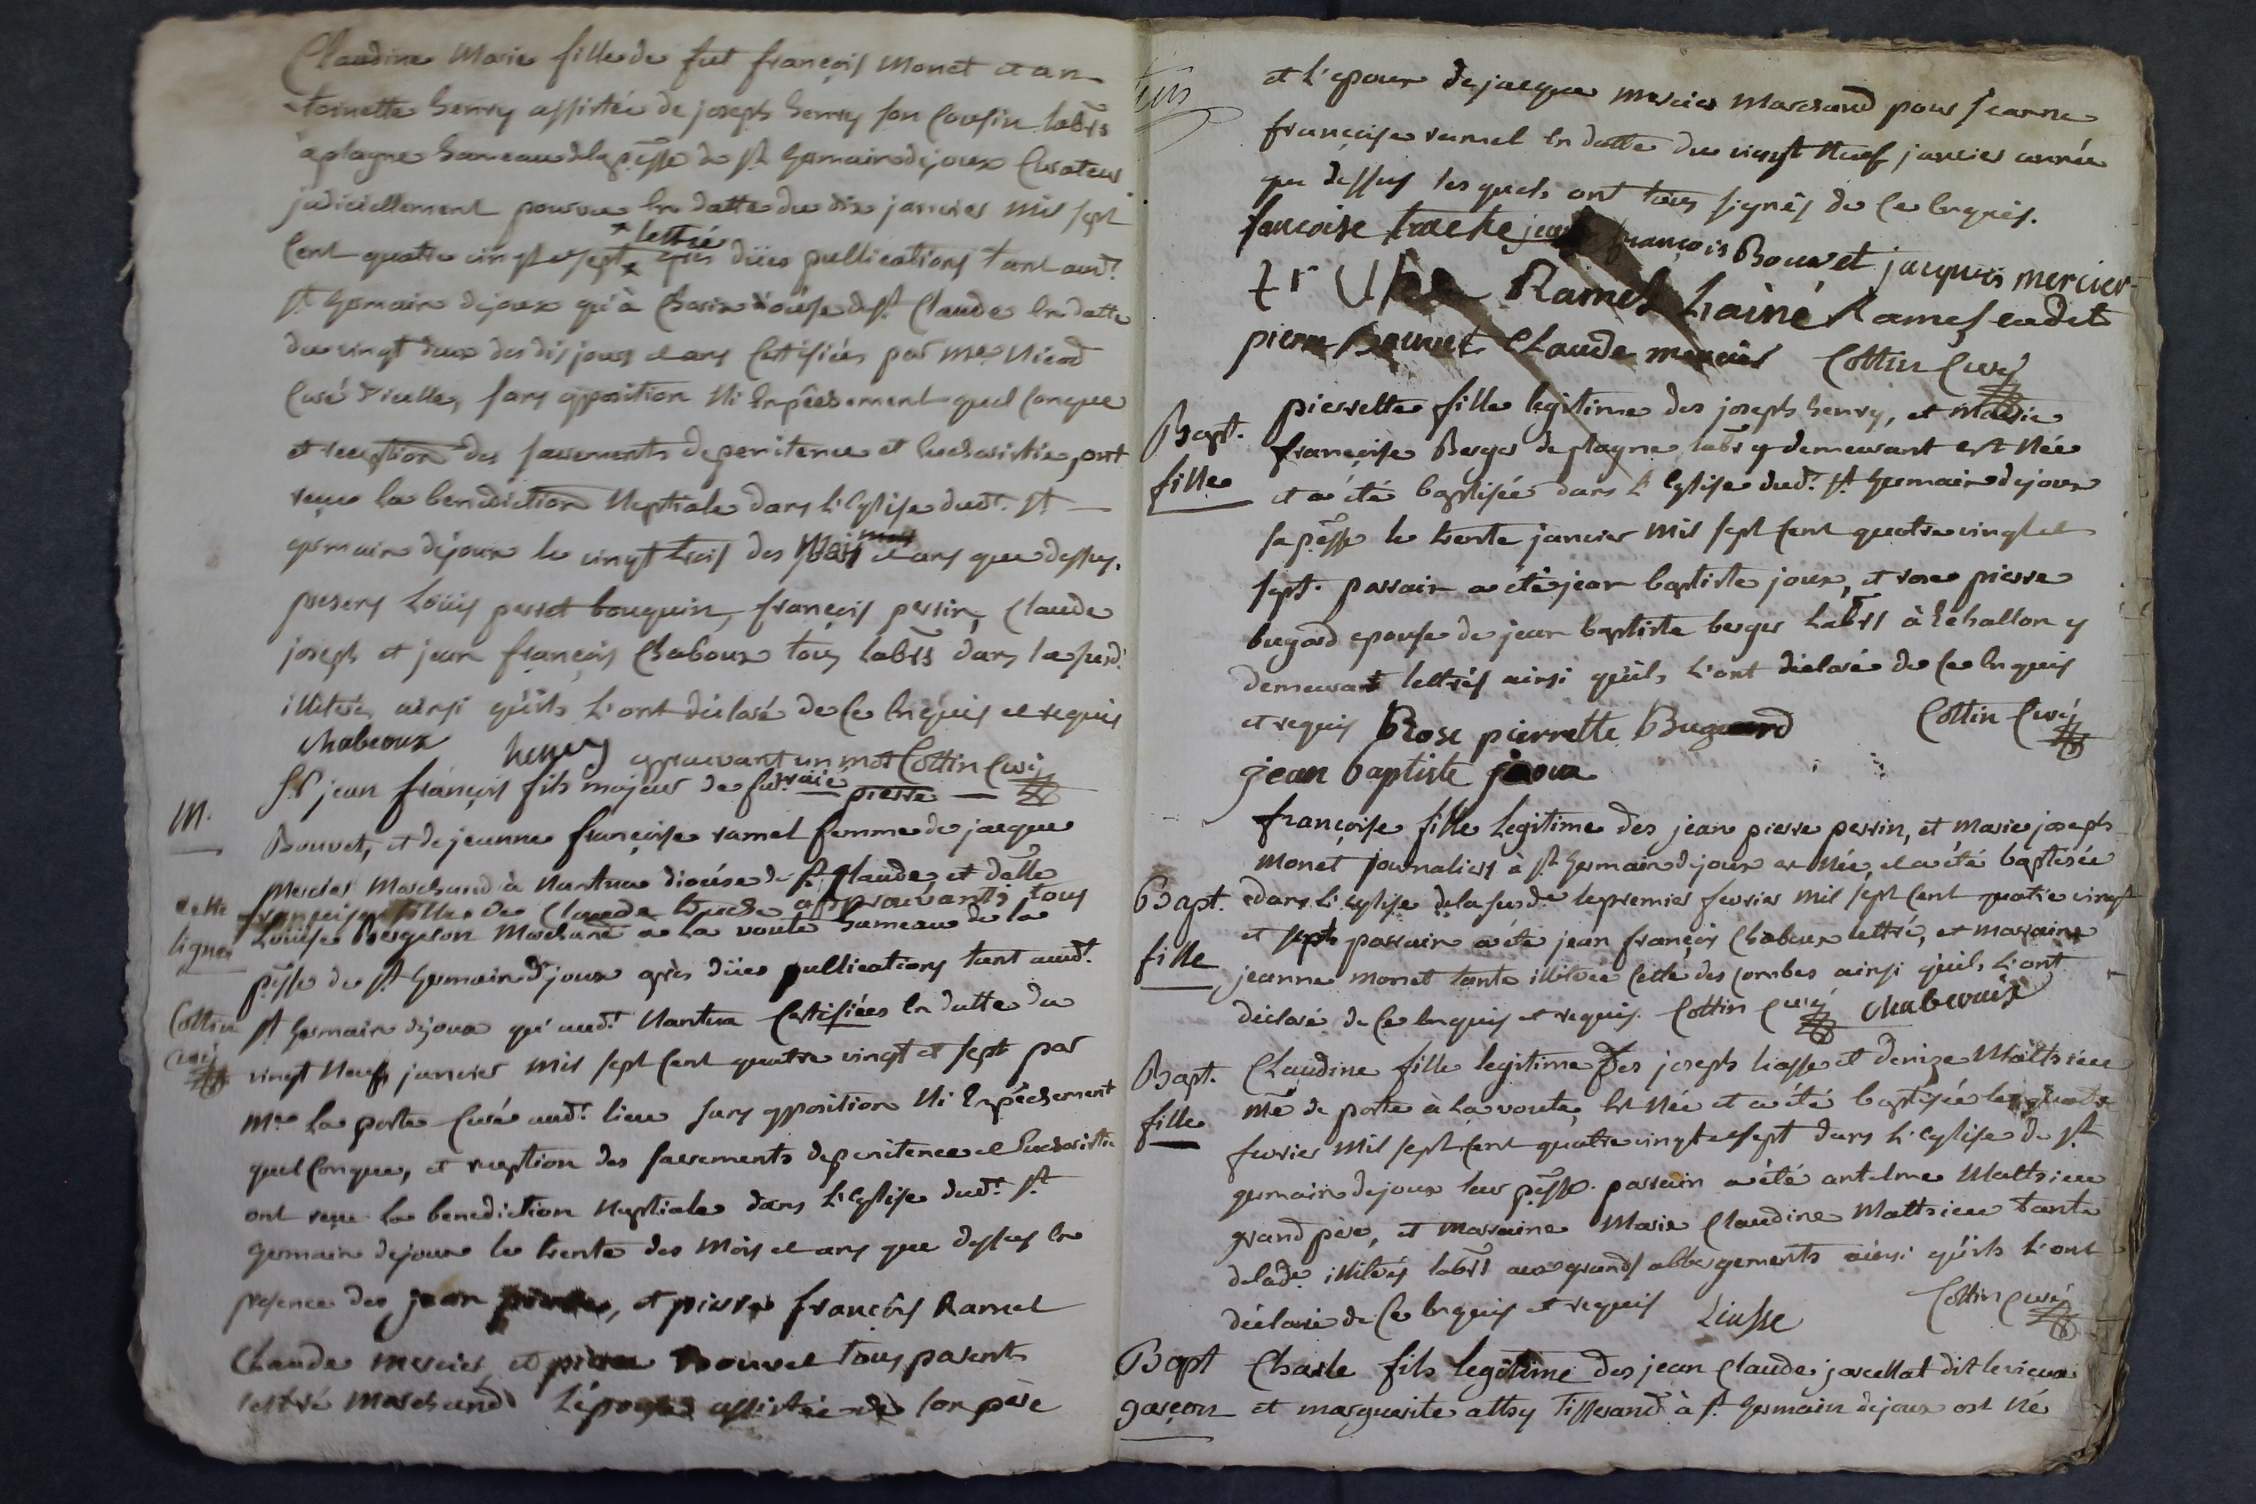 Claudine Marie fille de fut françois Monet et an
-toinette henry assistée de joseph henry son cousin labrs
à plagne hameau de la pesse de st germain de joux curateur
judiciellement pourvu en datte du dix janvier mil sept
cent quatre vingt et sept × lettré après dües publications tant aud.t
st germain dejoux qu'à Charix diocèse de st Claude en datte
du vingt deux des dis jours et ans certifiées par me Nicod
curé d'icelle, sans opposition ni enpêchement quel conque
et reception des sacrements de penitence et eucharistie, ont
reçu la benediction nuptiale dans l'église dud.t st
germain dejoux le vingt trois des mois et ans que dessus.
presens Loüis perret bouquin, françois perrin, Claude
joseph et jean françois Chaboux tous labrs dans la susd.
illiterés ainsi qu'ils l'ont déclaré de ce enquis et requis
chabeoux henry approuvant un mot Cottin curé
M. Sr jean françois fils majeur de fut pierre
Bouvet, et de jeanne françoise ramel femme de jacque
Mercier Marchand à Nantua diocèse de st Claude et delle
françoise fille de Claude approuvants tous
Loüise Bergeron Marchand a la voute hameau de la
pesse de st germain d'joux après dües publications tant aud.t
Cottin curé
st germain dejoux qu'aud.t Nantua certifiées en datte du
vingt neuf janvier mil sept cent quatre vingt et sept par
Mre la porte curé aud.t lieu sans opposition ni enpêchement
quel conque, et reception des sacrements de penitence et Eucharistie
ont reçu la benediction nuptiale dans l'église dud.t st
germain dejoux le trente des mois et ans que dessus en
presence des jean, et pierre françois Ramel
Claude mercier et pierre Bouvet tous parents
lettré marchand L'épouse assistée de son père
et l'epoux de jacque mercier marchand pour jeanne
françoise ramel en datte du vingt neuf janvier année
que dessus les quels ont tous signés de ce enquis.
françoise jean françois Bouvet jacques mercier
Ramel Lainé Ramel cadet
pierre Bouvet Claude mercier Cottin curé
Bapt. fille
pierrette fille legitime des joseph henry, et Marie
françoise Berger de plagne labrs y demeurant est née
et a été baptisée dans l'eglise dud.t st germain dejoux
sa pesse le trente janvier mil sept cent quatre vingt et
sept. parrain a été jean baptiste joux, et rose pierre
bugard epouse de jean baptiste berger labrs à Echallon y
demeurant lettrés ainsi qu'ils l'ont déclaré de ce enquis
et requis Rose pierrette Buguard Cottin curé
jean baptiste joux
Bapt. fille
françoise fille legitime des jean pierre perrin, et marie joseph
monet journaliers à st germain dejoux est née, et a été baptisée
dans l'eglise de la susd.e le premier fevrier mil sept cent quatre vingt
et sept parrain a été jean françois Chaboux lettré, et marraine
jeanne monet tante illiterée celle des combes ainsi qu'ils l'ont
déclaré de ce enquis et requis. Cottin curé Chabeoux
Bapt. fille
Claudine fille legitime des joseph liasse et denize Matthieu
me de poste à la voute, est née et a été baptisée le quatre
fevrier mil sept cent quatre vingt et sept dans l'eglise de st
germain dejoux leur pesse. parrain a été antelme Matthieu
grand père, et marraine Marie Claudine Matthieu tante
illiterés labrs aux grands abbergements ainsi qu'ils l'ont
déclaré de ce enquis et requis Liasse Cottin curé
Bapt garçon
Charle fils legitime des jean Claude javellat dit levieux
et marguerite Tisserand à st germain dejoux est né